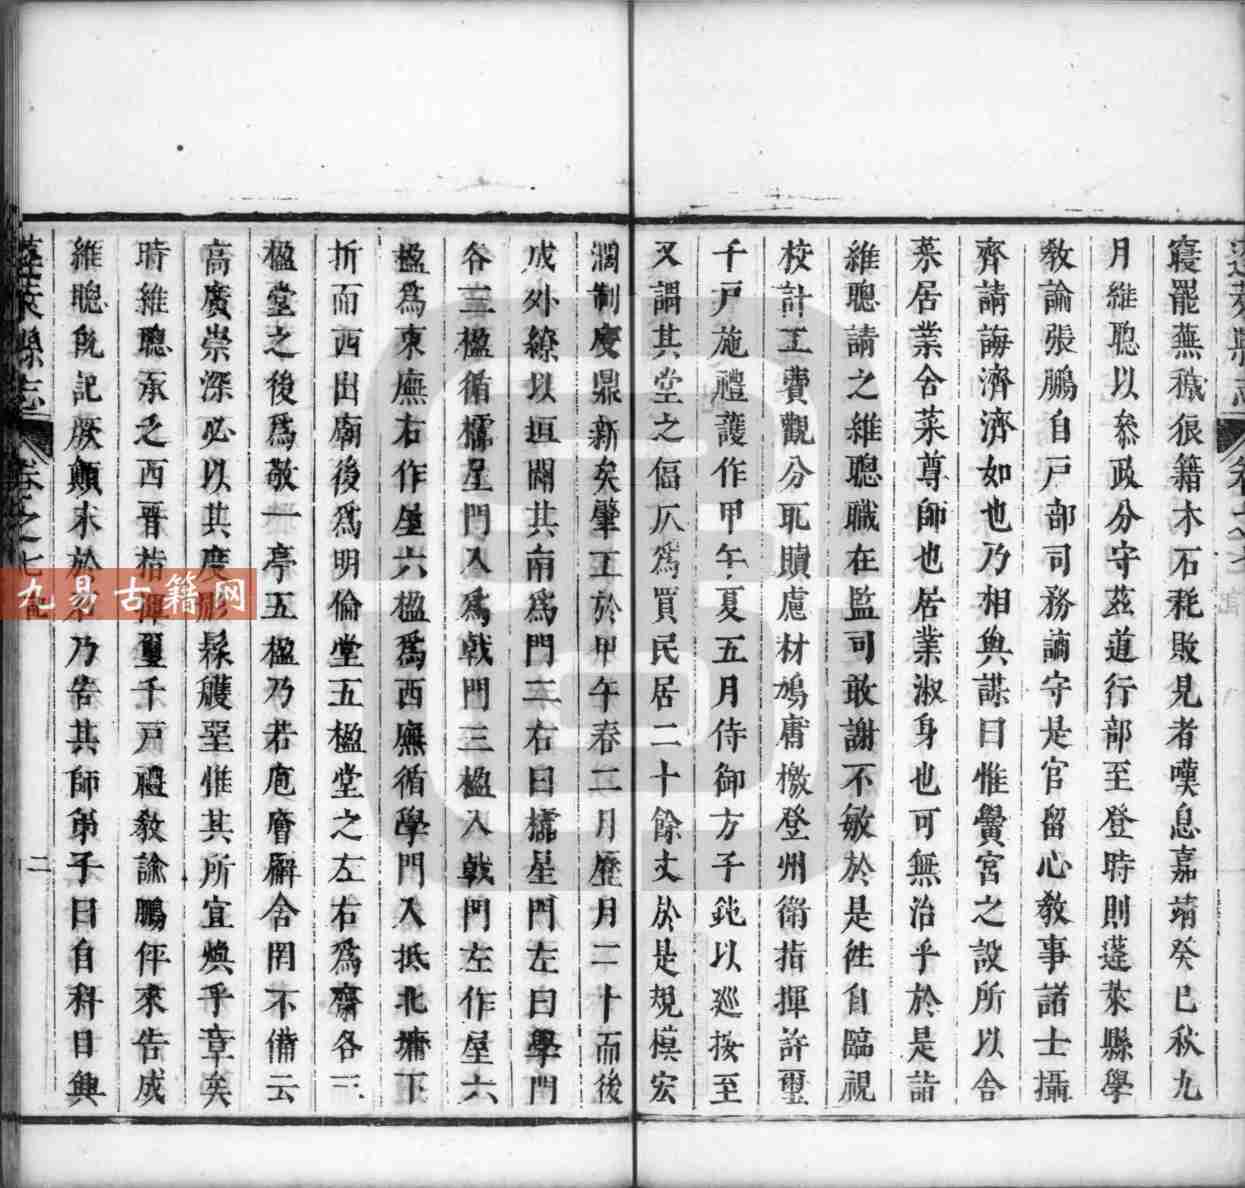 蓬萊縣志 卷之七
寢罷蕪穢很籍木石秏敗見者嘆息嘉靖癸巳秋九
月維聰以叅政分守茲道行部至登時則蓬萊縣學
敎諭張鵬自戶部司務謫守是官留心敎事諸士攝
齊請誨濟濟如也乃相與謀曰惟黌宮之設所以舍
菜居業舍菜尊師也居業淑身也可無治乎於是詣
維聰請之維聰職在監司敢謝不敏於是徃自臨視
校計工費觀分取贖慮材鳩庸檄登州衛指揮許璽
千戸施禮護作甲午夏五月侍御方千鈍以巡按至
又謂其堂之偪仄爲買民居二十餘丈於是規模宏
濶制度鼎新矣肇工於甲午春二月歷月二十而後
成外繚以垣闢其南爲門二右曰櫺星門左曰學門
各三楹循櫺星門入爲戟門三楹入戟門左作屋六
楹爲東廡右作屋六楹爲西廡循學門入抵北墉下
折而西出廟後爲明倫堂五楹堂之左右爲齋各三
楹堂之後爲敬一亭五楹乃若庖廥廨舍罔不備云
高廣崇深必以其度髤䕶堊惟其所宜煥乎章矣
時維聰承之西晋指揮璽千戸禮敎諭鵬伻來告成
維聰旣記厥顛末於石乃告其師弟子曰自科目興
蓬萊縣志 卷之七 記 二
九易古籍网